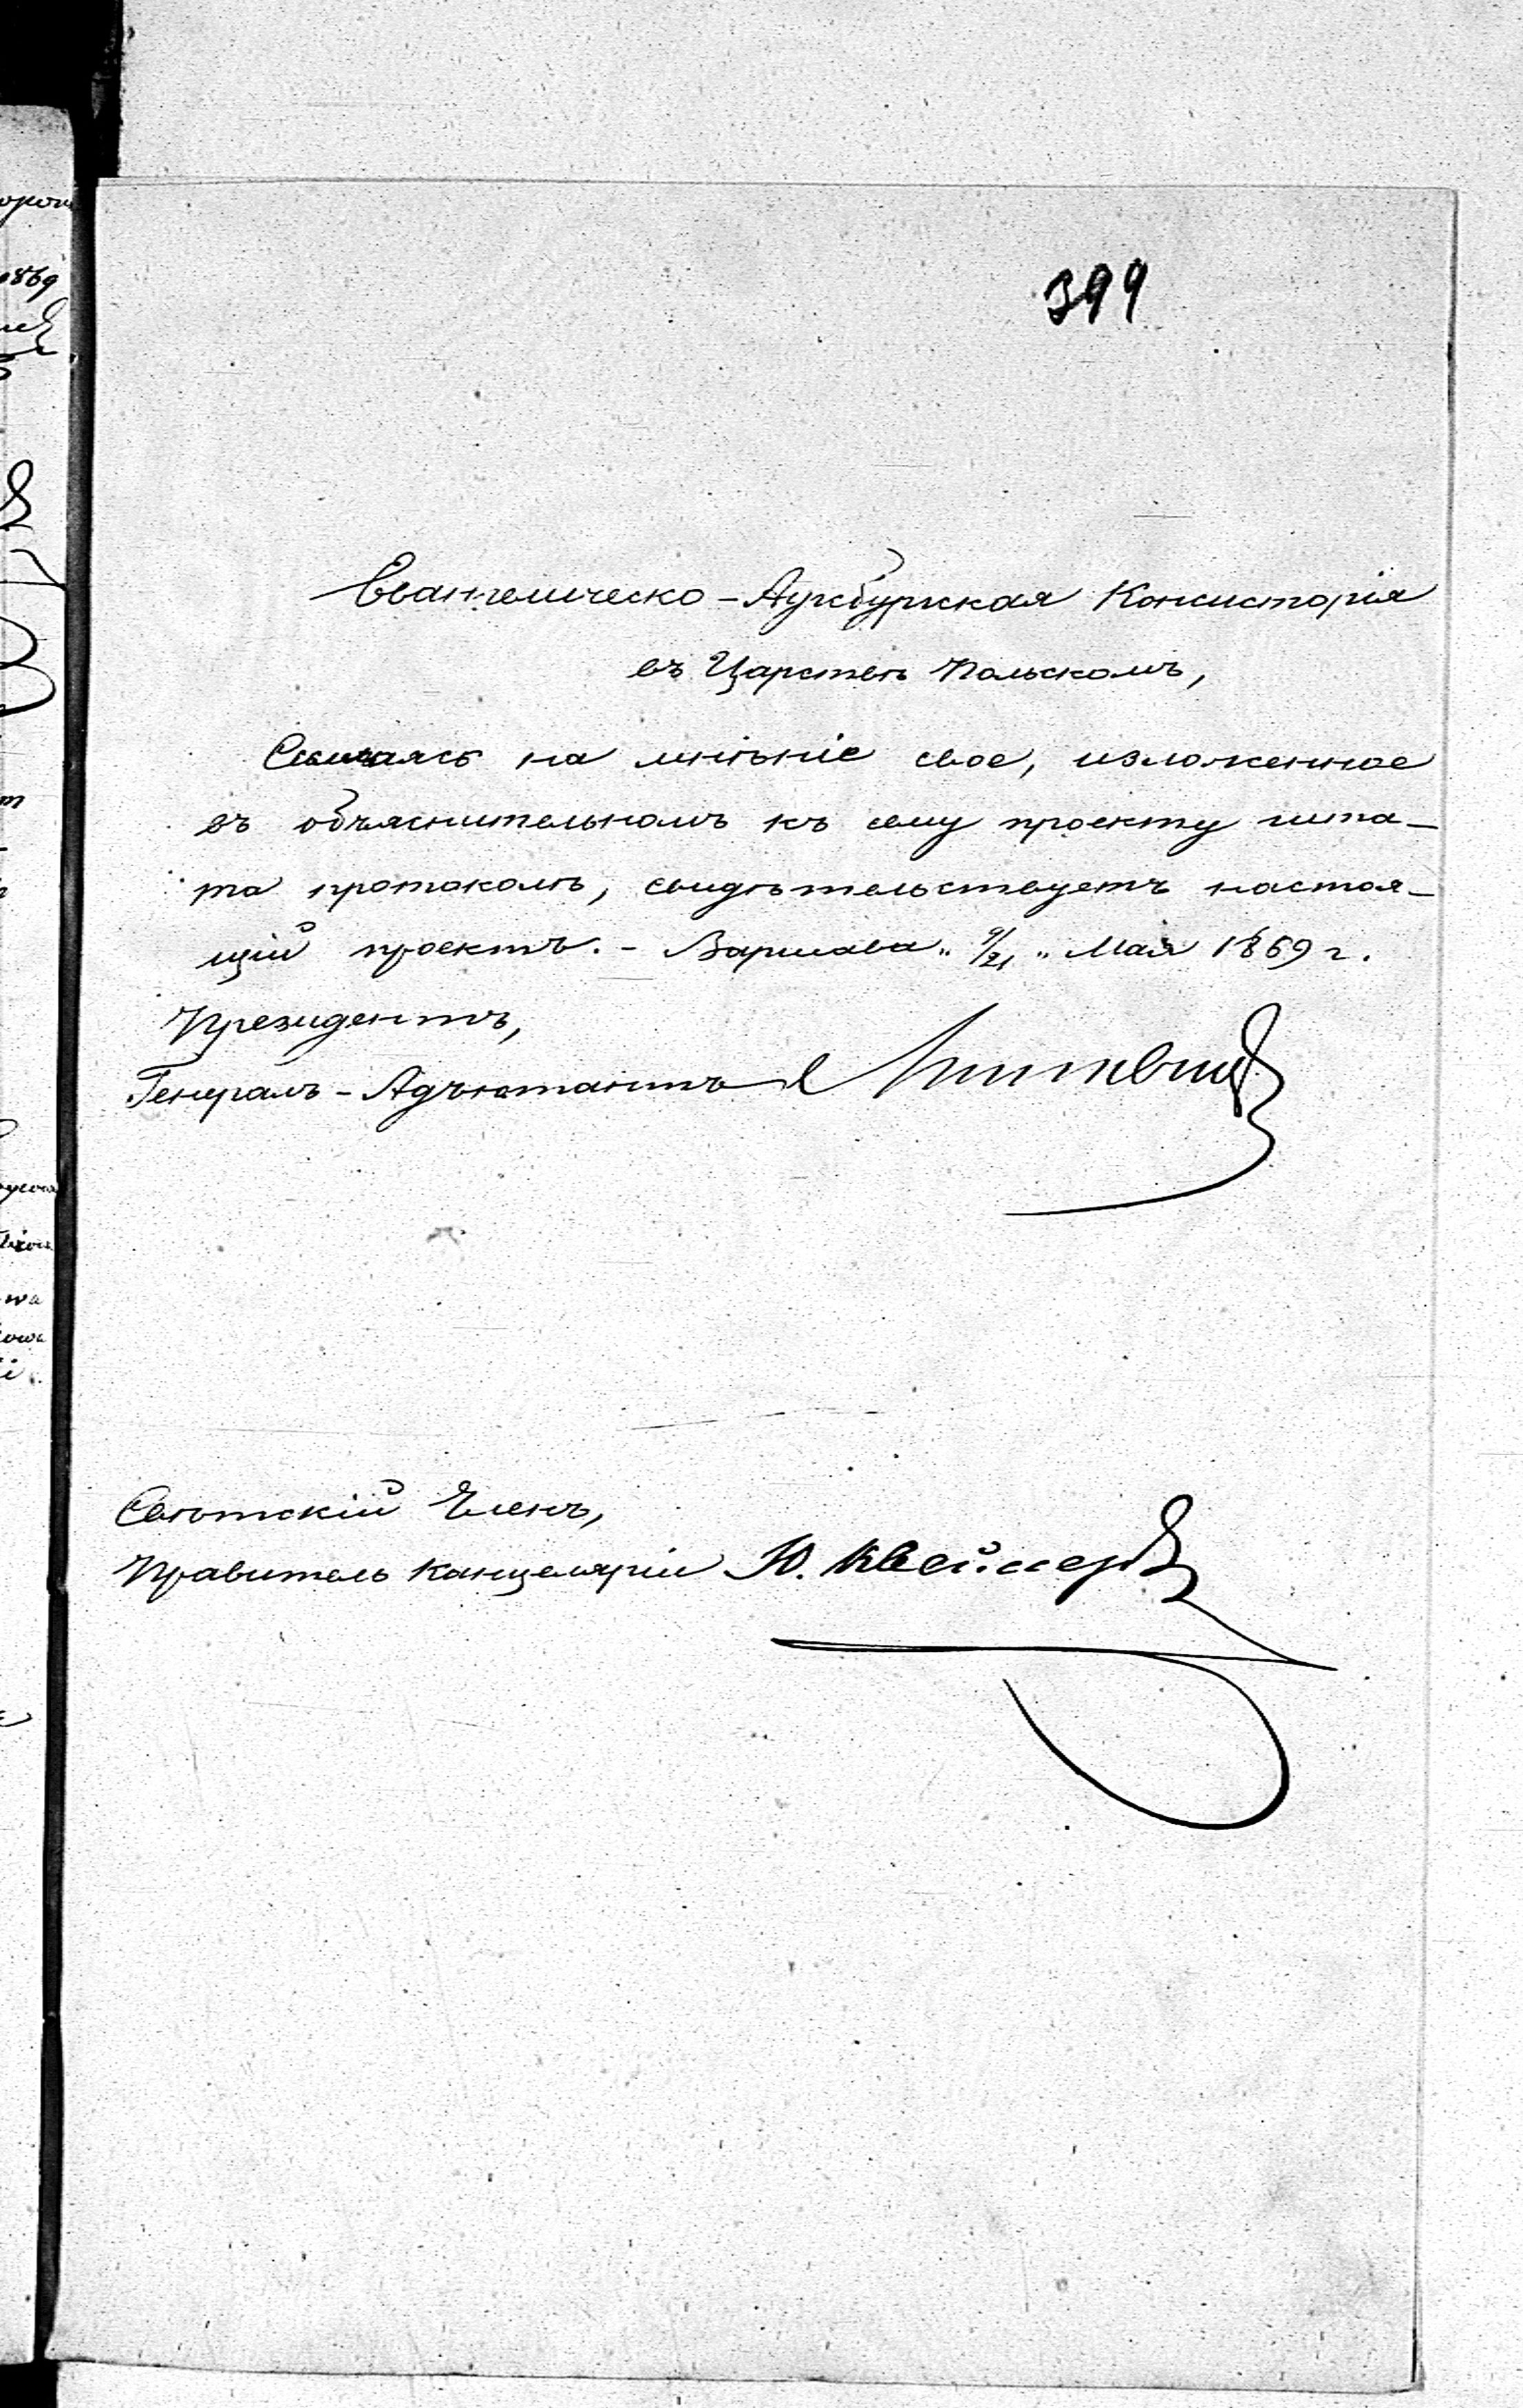 399
Евангелическо-Аугсбургская Консисторія
въ Царствѣ Польскомъ,
Ссылаясь на мнѣніе свое, изложенное
въ объяснительномъ къ сему проекту шта-
та протоколѣ, свидѣтельствуетъ настоя-
щій проектъ. - Варшава „ 9/21 „ Мая 1869 г.
Президентъ,
Генералъ-Адъютантъ
Свѣтскій Членъ,
Правитель Канцеляріи Ю.